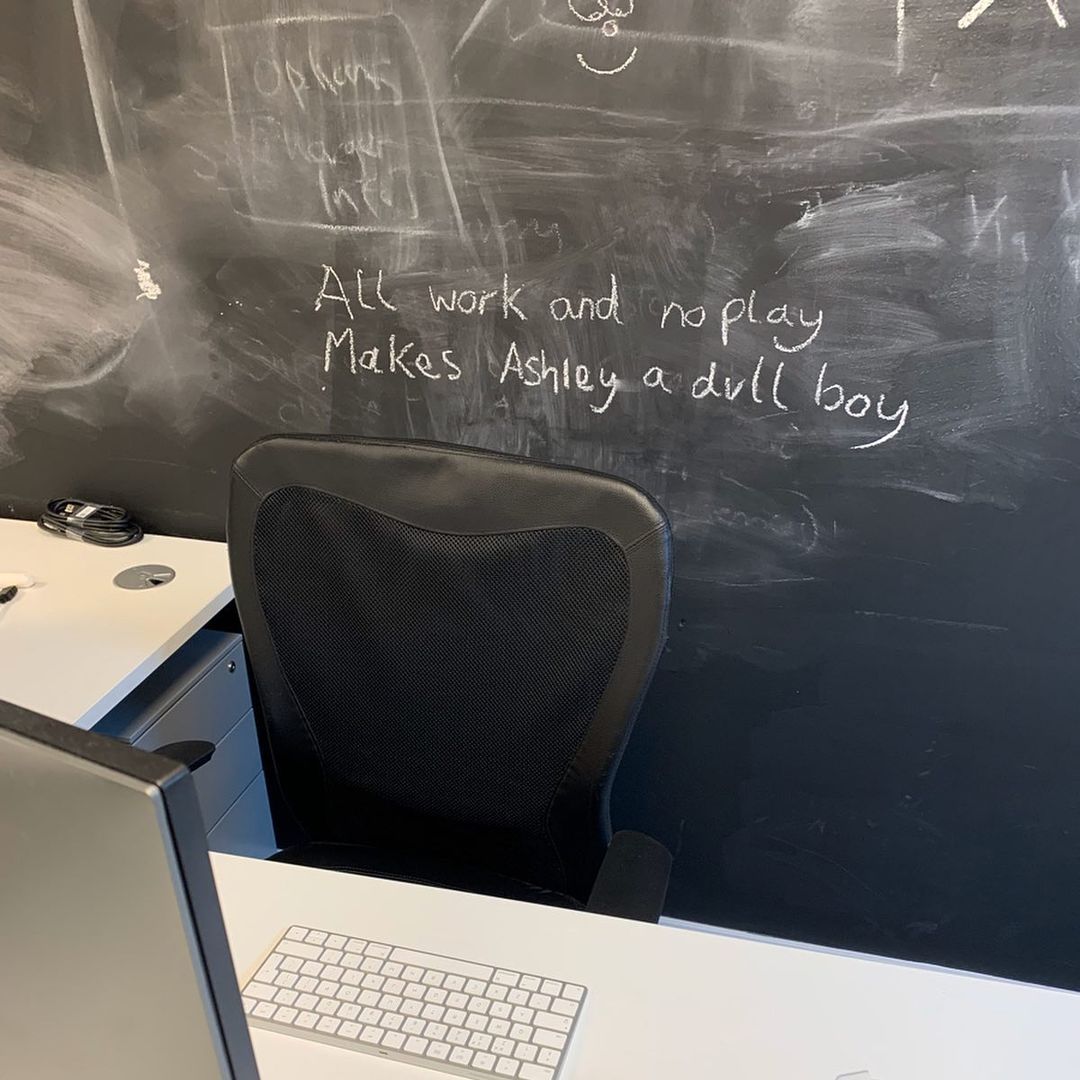 Options
Charger
Info
All work and no play
Makes Ashley a dull boy